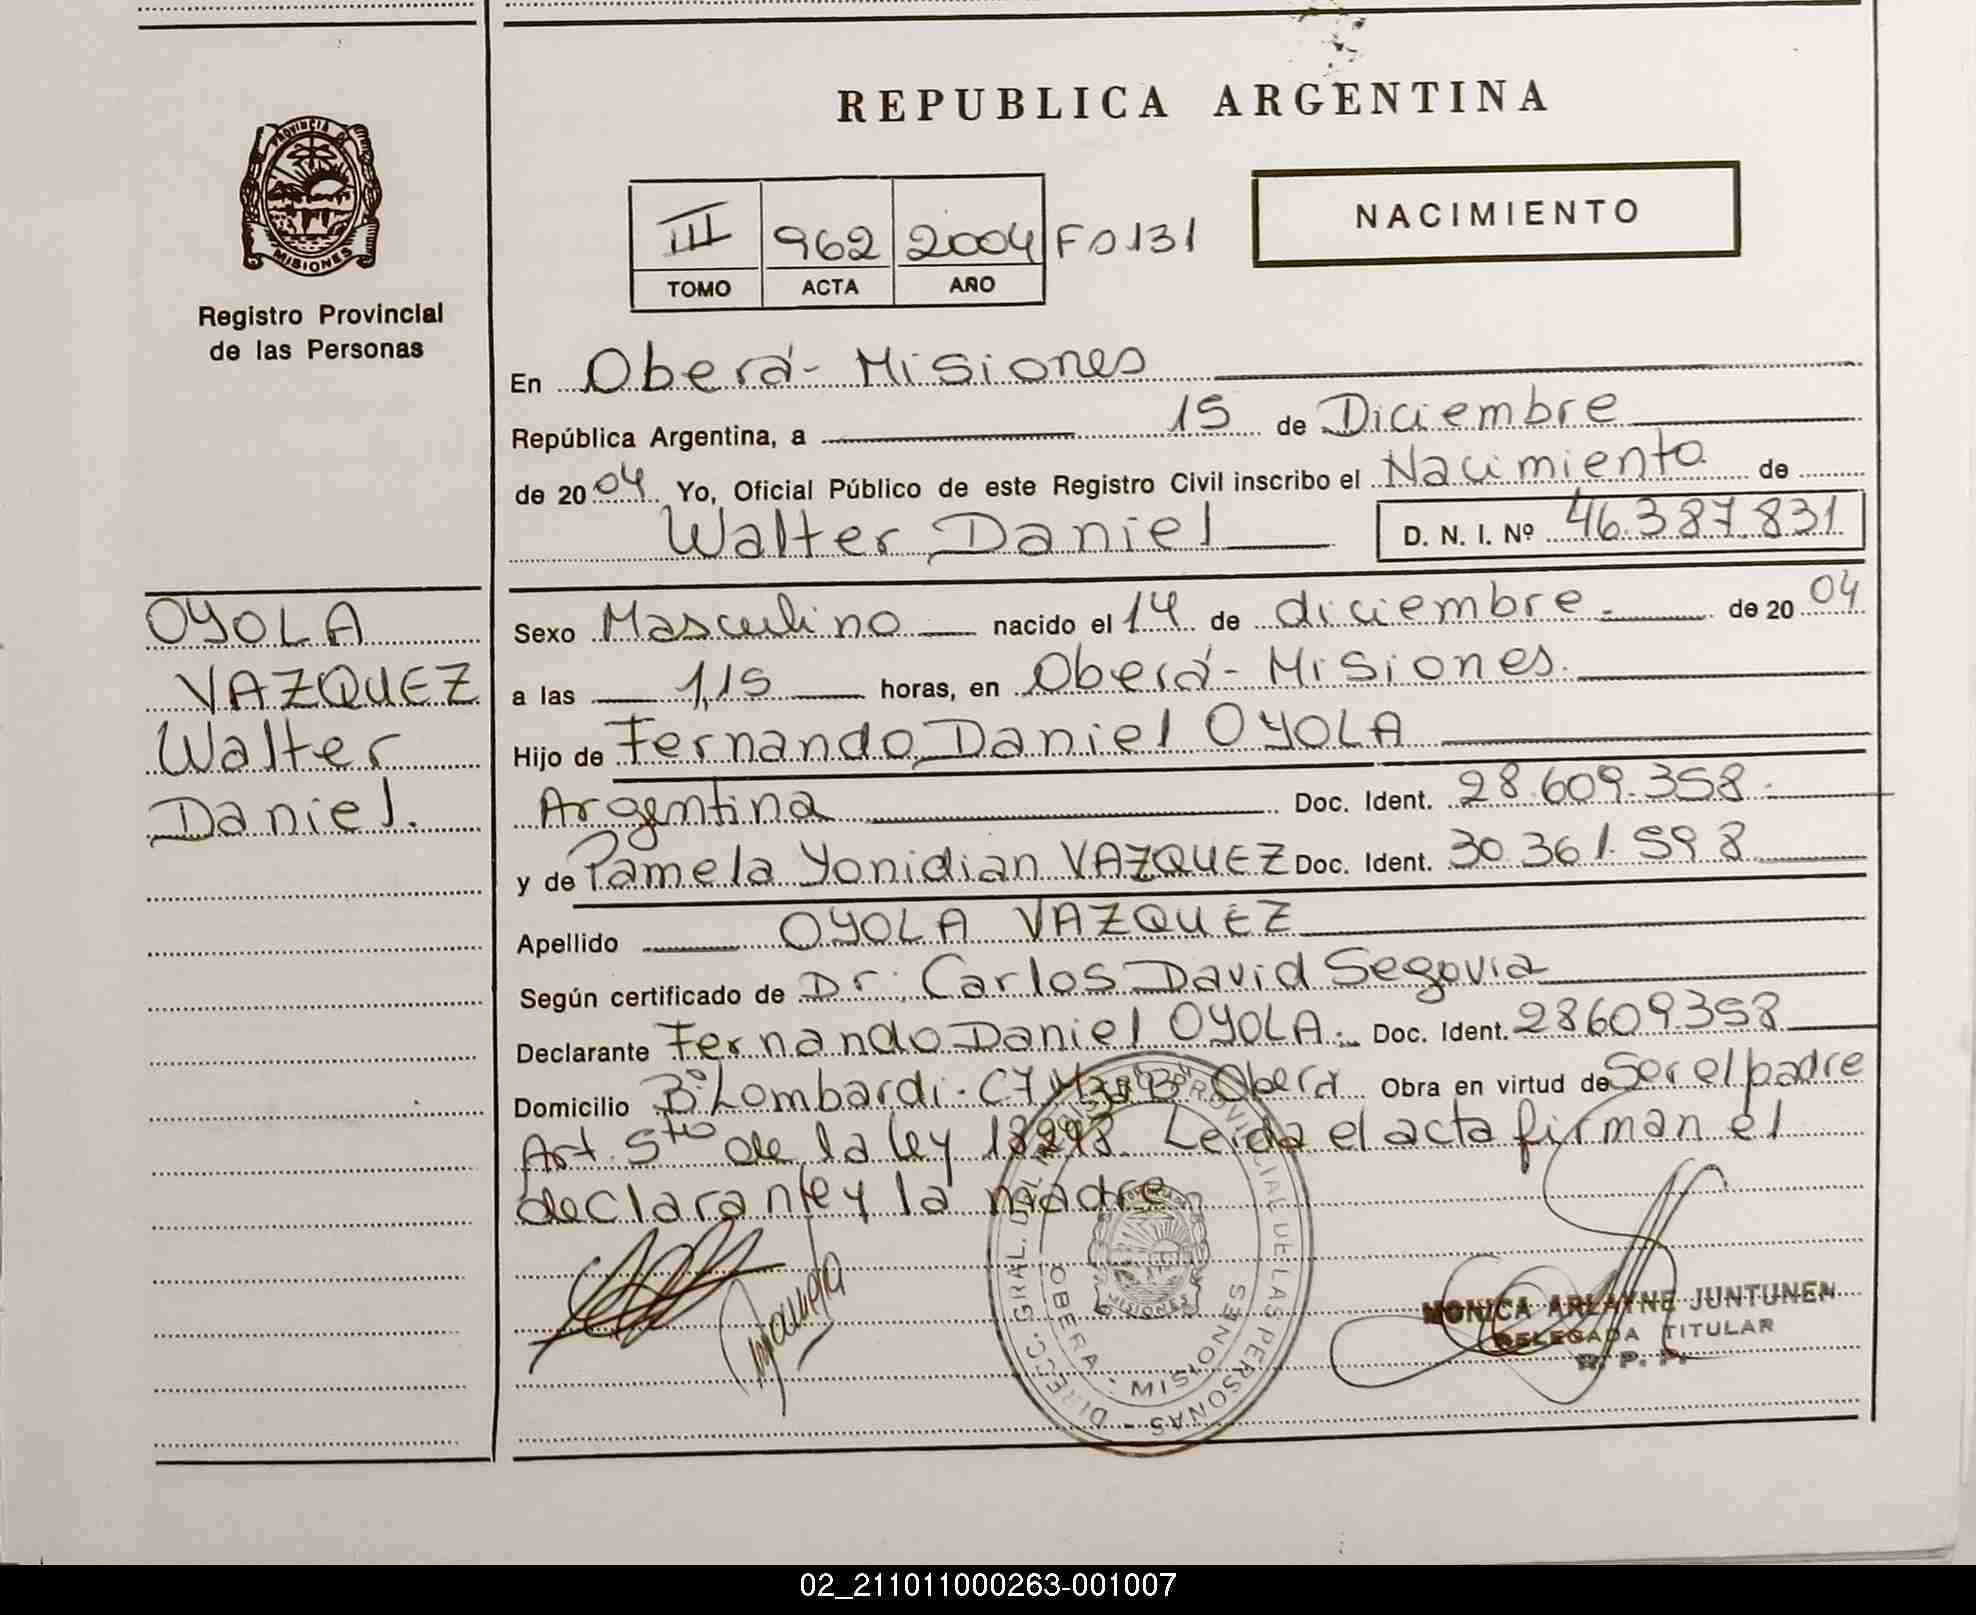 REPUBLICA ARGENTINA
PROVINCIA DE
MISIONES
Registro Provincial
de las Personas
III 962 2004 Fo 131
TOMO ACTA AÑO
NACIMIENTO
En Oberá - Misiones
República Argentina, a 15 de Diciembre
de 2004 Yo, Oficial Público de este Registro Civil inscribo el Nacimiento de
Walter Daniel D. N. I. Nº 46.387.831
OYOLA
VAZQUEZ
Walter
Daniel.
Sexo Masculino nacido el 14 de diciembre.- de 2004
a las 1,15 horas, en Oberá - Misiones.
Hijo de Fernando Daniel OYOLA
Argentina Doc. Ident. 28.609.358.
y de Pamela Yonidian VAZQUEZ Doc. Ident. 30.361.598
Apellido OYOLA VAZQUEZ
Según certificado de Dr. Carlos David Segovia
Declarante Fernando Daniel OYOLA.- Doc. Ident. 28609358
Domicilio Bº Lombardi - C7 "B" Oberá Obra en virtud de Ser el padre
Art. 5to de la ley 18248. Leida el acta firman el
declarante y la madre
Pamela
DIRECC. GRAL. DEL REGISTRO PROVINCIAL DE LAS PERSONAS -
OBERA - MISIONES
MISIONES
MONICA ARLAYNE JUNTUNEN
DELEGADA TITULAR
R. P. P.
02_211011000263-001007